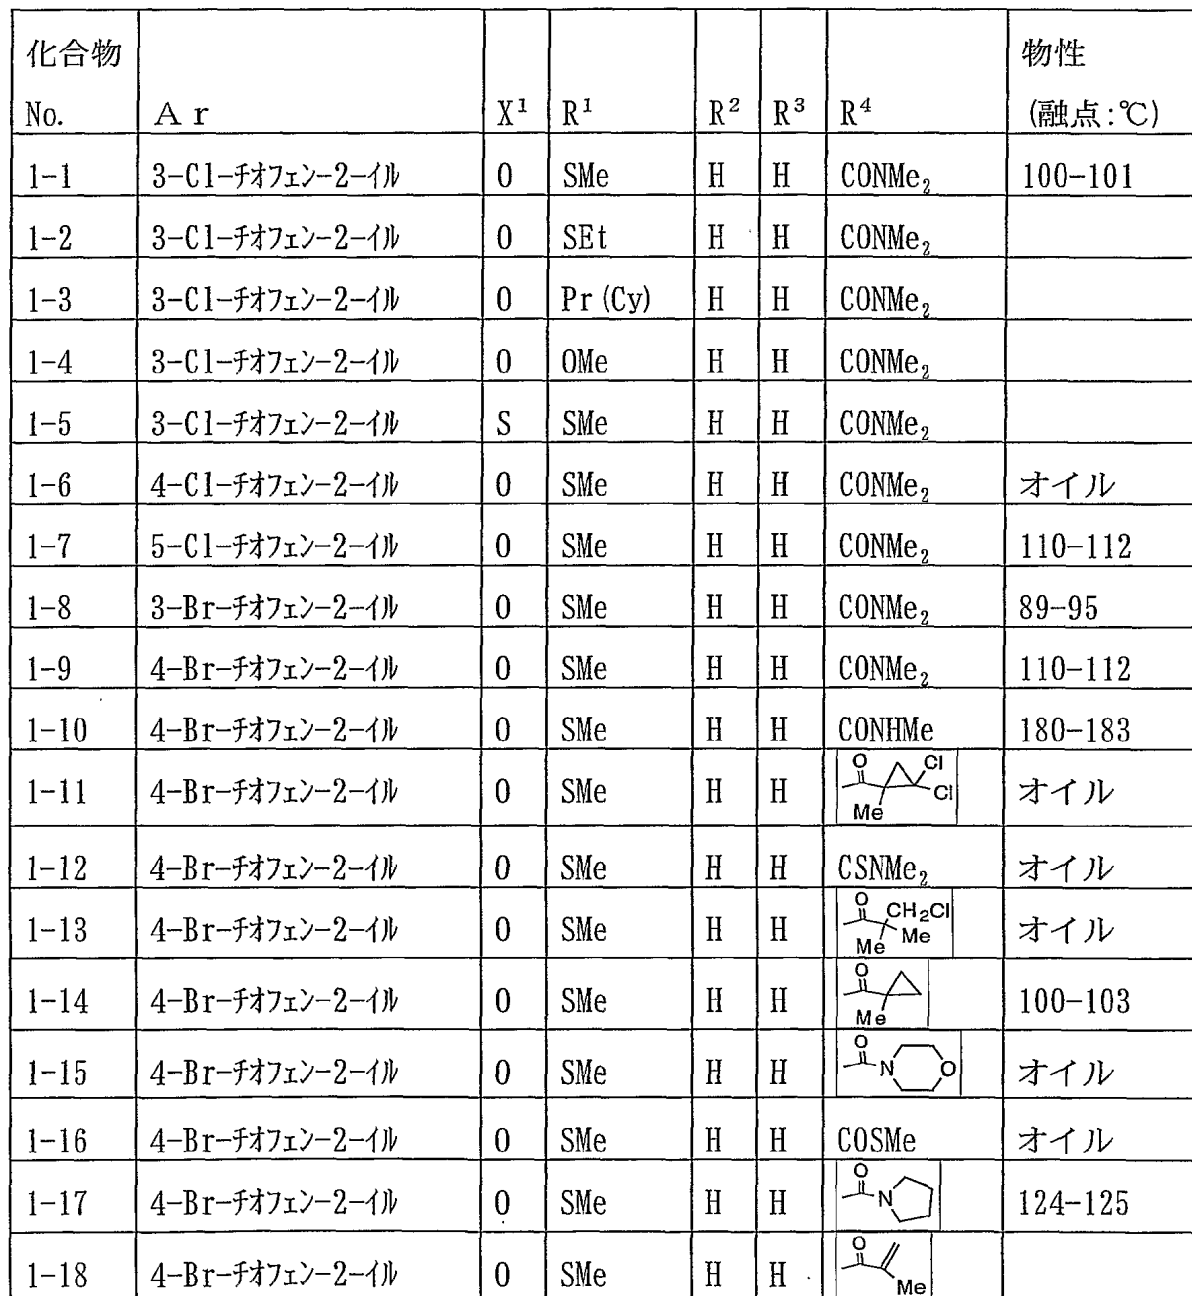 化合物 物性
No. Ar X¹ R¹ R² R³ R⁴ (融点:℃)
1-1 3-Cl-チオフェン-2-イル O SMe H H CONMe₂ 100-101
1-2 3-Cl-チオフェン-2-イル O SEt H H CONMe₂
1-3 3-Cl-チオフェン-2-イル O Pr(Cy) H H CONMe₂
1-4 3-Cl-チオフェン-2-イル O OMe H H CONMe₂
1-5 3-Cl-チオフェン-2-イル S SMe H H CONMe₂
1-6 4-Cl-チオフェン-2-イル O SMe H H CONMe₂ オイル
1-7 5-Cl-チオフェン-2-イル O SMe H H CONMe₂ 110-112
1-8 3-Br-チオフェン-2-イル O SMe H H CONMe₂ 89-95
1-9 4-Br-チオフェン-2-イル O SMe H H CONMe₂ 110-112
1-10 4-Br-チオフェン-2-イル O SMe H H CONHMe 180-183
1-11 4-Br-チオフェン-2-イル O SMe H H O Cl Cl Me オイル
1-12 4-Br-チオフェン-2-イル O SMe H H CSNMe₂ オイル
1-13 4-Br-チオフェン-2-イル O SMe H H O CH₂Cl Me Me オイル
1-14 4-Br-チオフェン-2-イル O SMe H H O Me 100-103
1-15 4-Br-チオフェン-2-イル O SMe H H O N O オイル
1-16 4-Br-チオフェン-2-イル O SMe H H COSMe オイル
1-17 4-Br-チオフェン-2-イル O SMe H H O N 124-125
1-18 4-Br-チオフェン-2-イル O SMe H H O Me